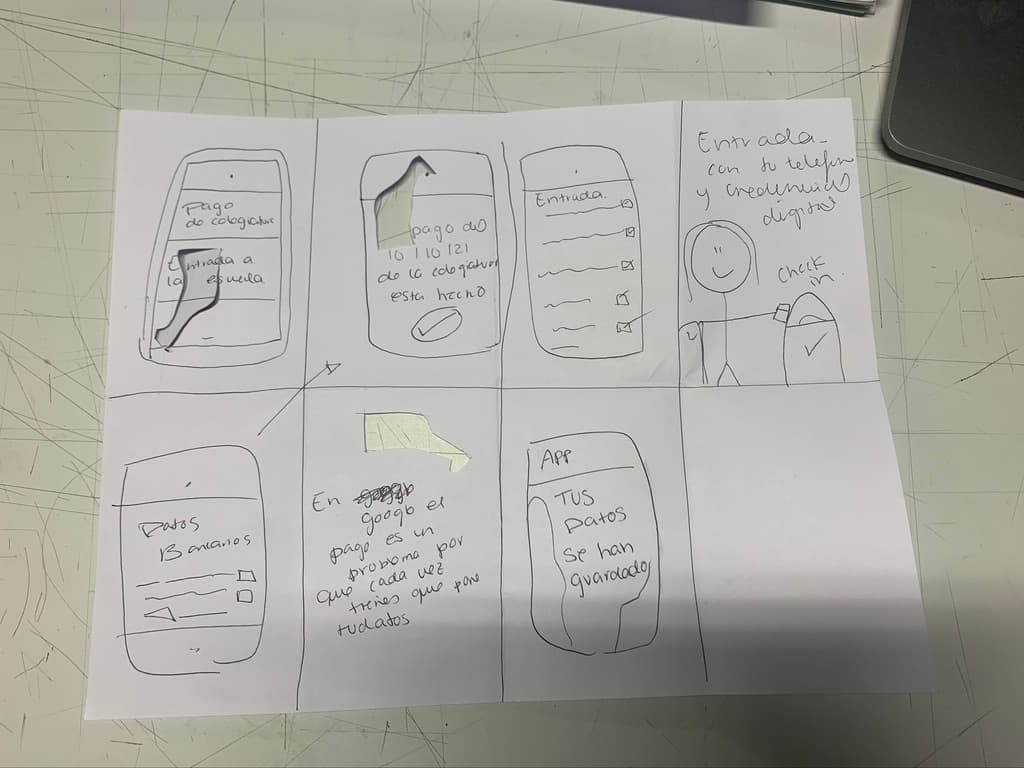 pago
de colegiatura
Entrada a
la escuela
pago de
10 / 10 / 21
de la colegiatura
esta hecho
Entrada.
Entrada
con tu telefon
y credencial
digital
Check
in.
Datos
Bancarios
En
googb el
pago es un
probema por
que cada vez
tienes que
tudatos
APP
TUS
Datos
Se han
guardado